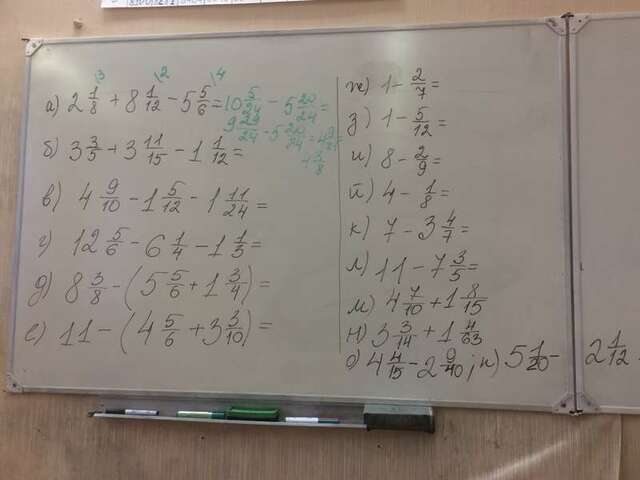 а) 2 1/8 + 8 1/12 - 5 5/6 = 10 5/24 - 5 20/24 =
9 29/24 - 5 20/24 = 4 9/24
б) 3 3/5 + 3 11/15 - 1 1/12 =
в) 4 9/10 - 1 5/12 - 1 11/24 =
г) 12 5/6 - 6 1/4 - 1 1/3 =
д) 8 3/8 - (5 5/6 + 1 3/4) =
е) 11 - (4 5/6 + 3 3/10) =
ж) 1 - 2/7 =
з) 1 - 5/12 =
и) 8 - 2/9 =
й) 4 - 1/8 =
к) 7 - 3 4/7 =
л) 11 - 7 3/5 =
м) 4 7/10 + 1 8/15
н) 3 3/14 + 1 4/63
о) 4 4/15 - 2 9/40; п) 5 1/20 - 2 1/12